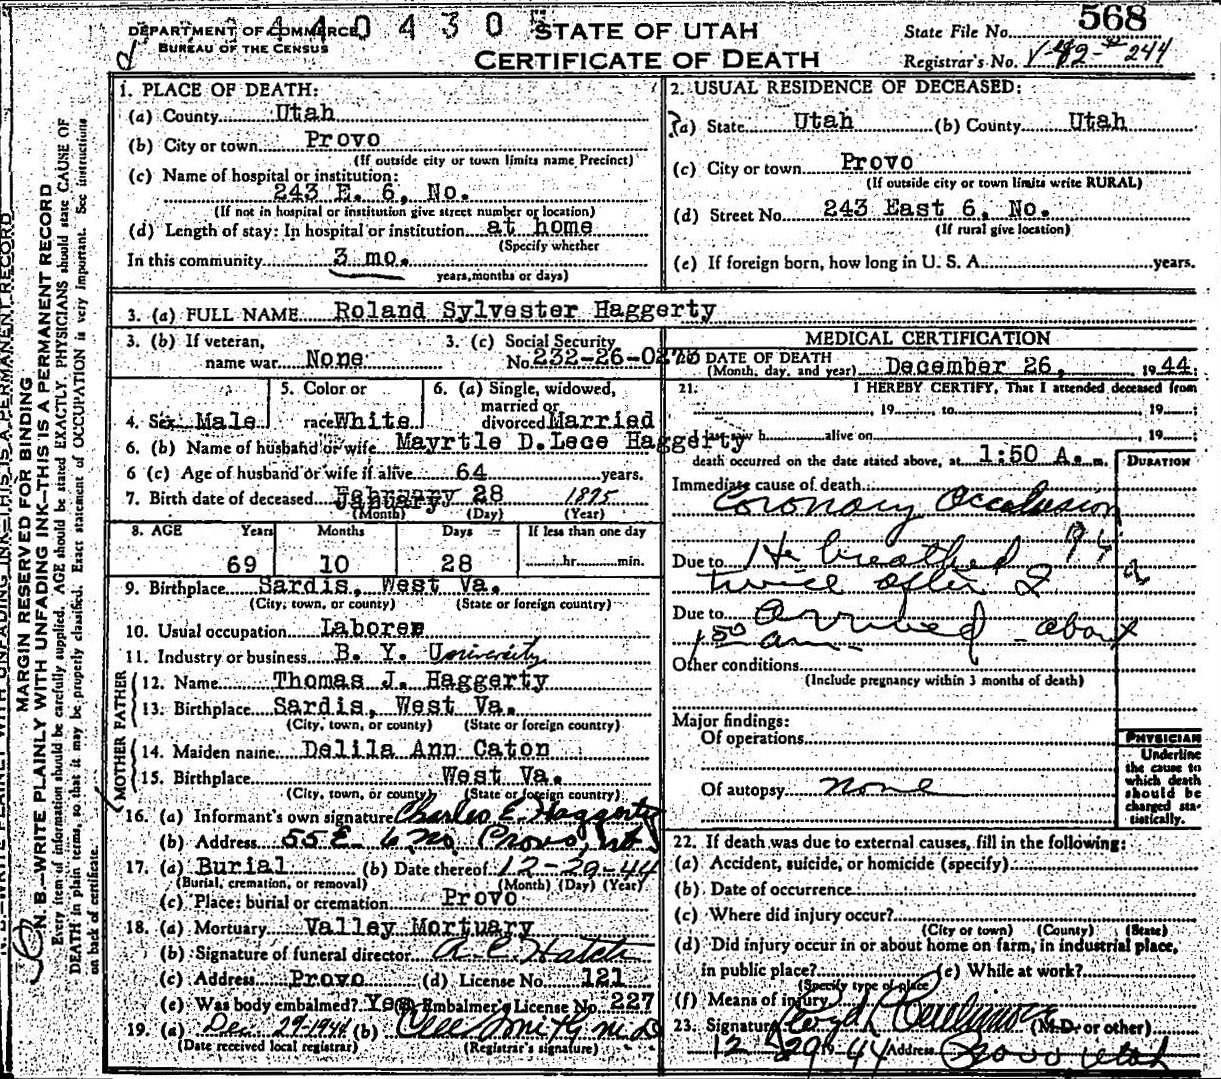 1440430
DEPARTMENT OF COMMERCE
BUREAU OF THE CENSUS
STATE OF UTAH
CERTIFICATE OF DEATH
State File No. 568
Registrar's No. 244
1. PLACE OF DEATH:
(a) County Utah
(b) City or town Provo
(If outside city or town limits name Precinct)
(c) Name of hospital or institution:
243 E. 6, No.
(If not in hospital or institution give street number or location)
(d) Length of stay: In hospital or institution at home
(Specify whether
In this community 3 mo.
years, months or days)
2. USUAL RESIDENCE OF DECEASED:
(a) State Utah (b) County Utah
(c) City or town Provo
(If outside city or town limits write RURAL)
(d) Street No. 243 East 6, No.
(If rural give location)
(e) If foreign born, how long in U. S. A. years.
3. (a) FULL NAME Roland Sylvester Haggerty
3. (b) If veteran, name war None
3. (c) Social Security No. 232-26-0273
4. Sex Male
5. Color or race White
6. (a) Single, widowed, married or divorced Married
6. (b) Name of husband or wife Mayrtle D. Lece Haggerty
6 (c) Age of husband or wife if alive 64 years.
7. Birth date of deceased January 28 1875
(Month) (Day) (Year)
8. AGE Years Months Days If less than one day
69 10 28 hr. min.
9. Birthplace Sardis, West Va.
(City, town, or county) (State or foreign country)
10. Usual occupation Laborer
11. Industry or business B. Y. University
FATHER
12. Name Thomas J. Haggerty
13. Birthplace Sardis, West Va.
(City, town, or county) (State or foreign country)
MOTHER
14. Maiden name Delila Ann Caton
15. Birthplace West Va.
(City, town, or county) (State or foreign country)
16. (a) Informant's own signature Charles E. Haggerty
(b) Address 55 E 6 No. Provo, Ut
17. (a) Burial (b) Date thereof 12-29-44
(Burial, cremation, or removal) (Month) (Day) (Year)
(c) Place: burial or cremation Provo
18. (a) Mortuary Valley Mortuary
(b) Signature of funeral director A. E. Hatch
(c) Address Provo (d) License No. 121
(e) Was body embalmed? Yes Embalmer's License No. 227
19. (a) Dec 29-1944 (b) Smith M.D
(Date received local registrar) (Registrar's signature)
MEDICAL CERTIFICATION
20 DATE OF DEATH
(Month, day, and year) December 26, 1944;
21. I HEREBY CERTIFY, That I attended deceased from
, 19 , to , 19 ;
I last saw h alive on , 19 ;
death occurred on the date stated above, at 1:50 A. m.
DURATION
Immediate cause of death
Coronary Occlusion
Due to He breathed
twice after I
Due to arrived about
1:50 am
Other conditions
(Include pregnancy within 3 months of death)
Major findings:
Of operations
Of autopsy none
PHYSICIAN
Underline
the cause to
which death
should be
charged sta-
tistically.
22. If death was due to external causes, fill in the following:
(a) Accident, suicide, or homicide (specify)
(b) Date of occurrence
(c) Where did injury occur?
(City or town) (County) (State)
(d) Did injury occur in or about home on farm, in industrial place,
in public place? (e) While at work?
(Specify type of place)
(f) Means of injury
23. Signature (M.D. or other)
12-29-44 Address Provo Utah
MARGIN RESERVED FOR BINDING
N. B.—WRITE PLAINLY WITH UNFADING INK—THIS IS A PERMANENT RECORD
Every item of information should be carefully supplied. AGE should be stated EXACTLY. PHYSICIANS should state CAUSE OF
DEATH in plain terms, so that it may be properly classified. Exact statement of OCCUPATION is very important. See instructions
on back of certificate.